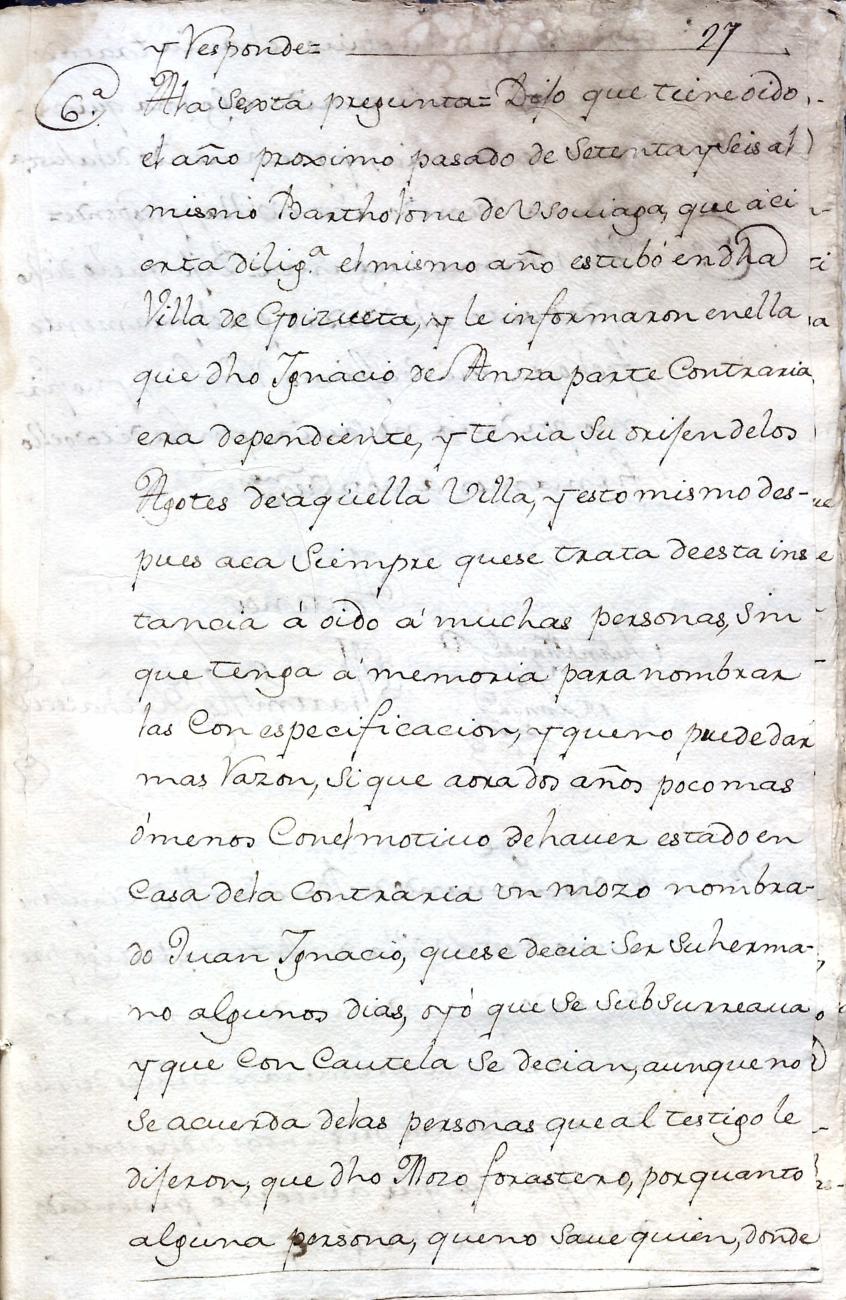 27
y Responde=
6.ª Ala Sexta pregunta= Dijo que tiene oido,
el año proximo pasado de Setenta y Seis al
mismo Bartholome de Vsouiaga, que a ci
erta dilig.ª el mismo año estubó en dha
Villa de Goizueta, y le informaron en ella
que dho Ignacio de Anza parte Contraria
era dependiente, y tenia Su orijen delos
Agotes de aquella Villa, y esto mismo des-
pues aca Siempre quese trata deesta ins
tancia á oido á muchas personas, Sin
que tenga á memoria para nombrar
las Con especificacion, y queno puede dar
mas Razon, Si que aora dos años poco mas
ó menos Conel motiuo de hauer estado en
Casa dela Contraria vn mozo nombra-
do Juan Ignacio, quese decia Ser Suherma-
no algunos dias, oyó que Se Subsurreaua
y que Con Cautela Se decian, aunque no
Se acuerda delas personas que al testigo le
dijeron, que dho Mozo forastero, porquanto
alguna persona, queno Saue quien, donde